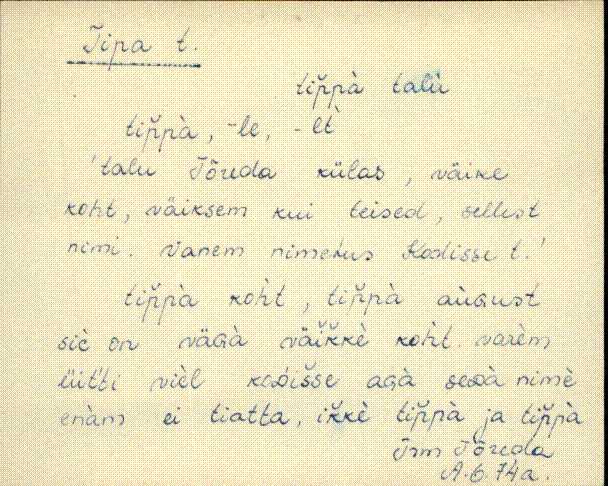 Tipa t.
tip̆pà talù
tip̆pà, -le, -lt̀
'talu Tõreda külas, väike
koht, väiksem kui teised, sellest
nimi. Vanem nimetus Kodisse t.'
tip̆pà koh̀t, tip̆pà aùɢust
siè on väɢà väik̆kè koh̀t. varèm
üit̆ti vièl koᴅiš̆se aɢà seᴅà nimè
enàm ei tiatta, ik̆kè tip̆pà ja tip̆pà
Tõreda
A.6.74a.